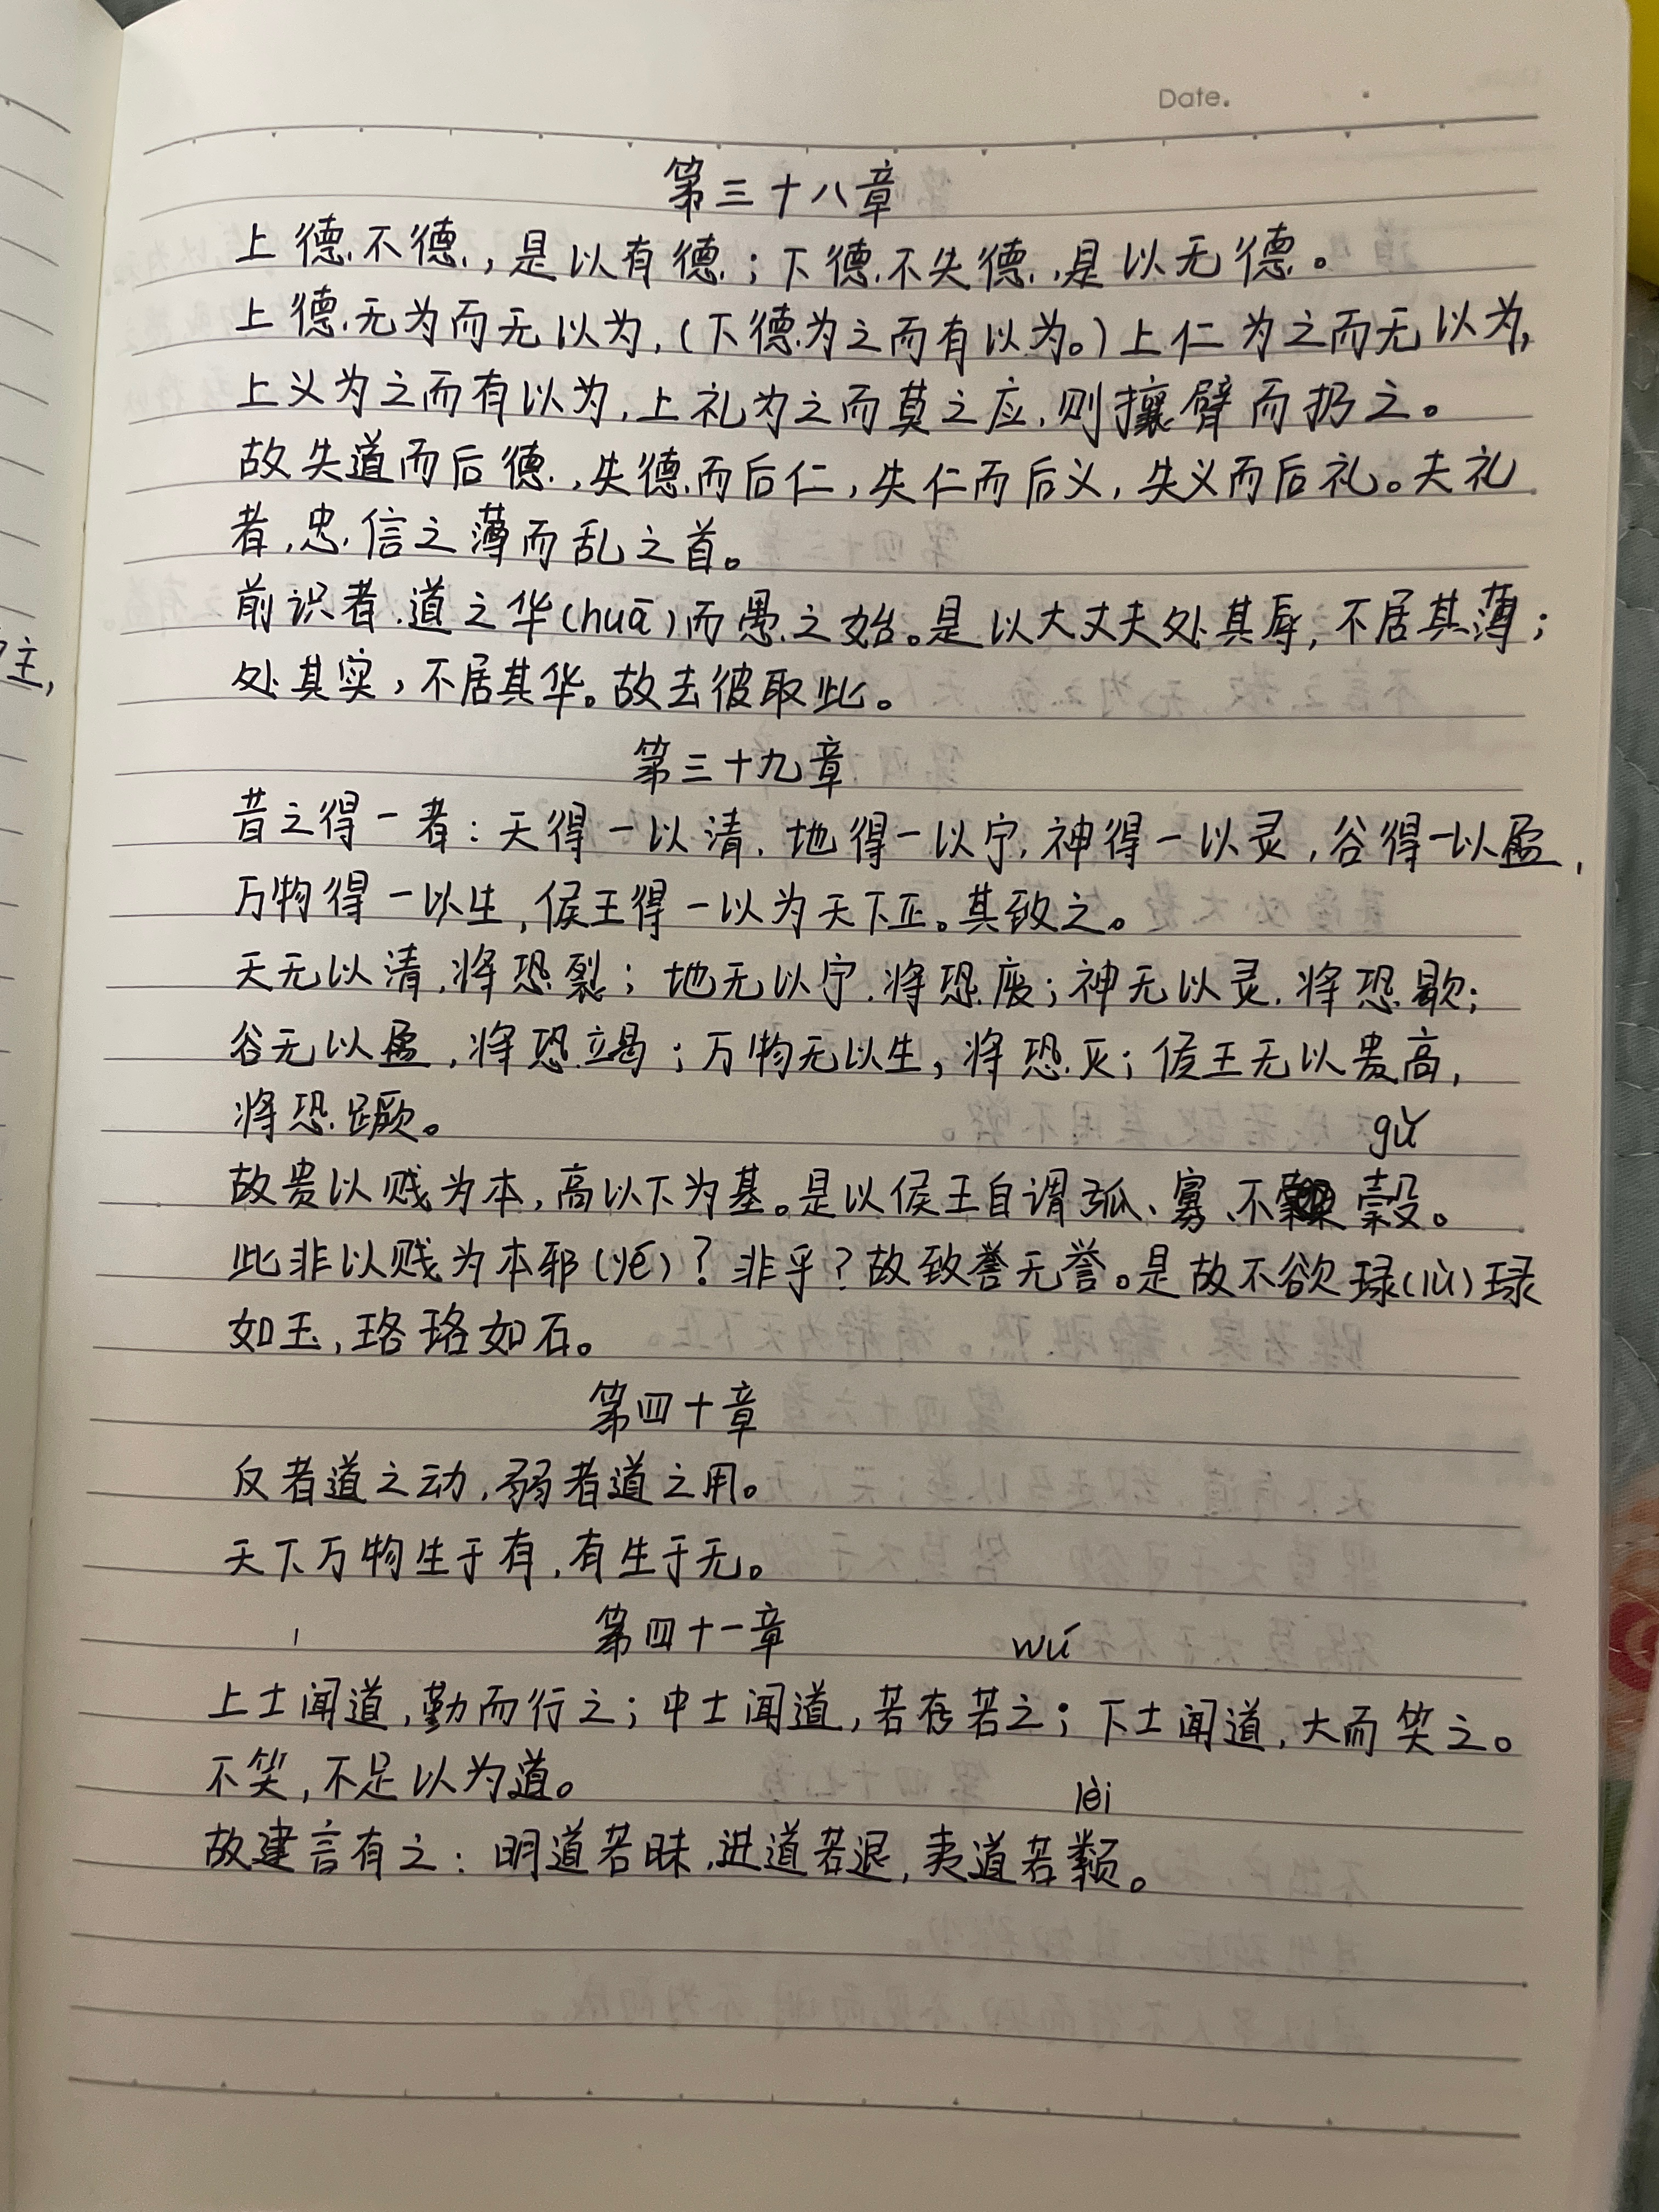 Date.
第三十八章
上德不德,是以有德;下德不失德,是以无德。
上德无为而无以为,(下德为之而有以为。)上仁为之而无以为,
上义为之而有以为,上礼为之而莫之应,则攘臂而扔之。
故失道而后德,失德而后仁,失仁而后义,失义而后礼。夫礼
者,忠信之薄而乱之首。
前识者,道之华(huā)而愚之始。是以大丈夫处其厚,不居其薄;
处其实,不居其华。故去彼取此。
第三十九章
昔之得一者:天得一以清,地得一以宁,神得一以灵,谷得一以盈,
万物得一以生,侯王得一以为天下正。其致之。
天无以清,将恐裂;地无以宁,将恐废;神无以灵,将恐歇;
谷无以盈,将恐竭;万物无以生,将恐灭;侯王无以贵高,
将恐蹶。
gǔ
故贵以贱为本,高以下为基。是以侯王自谓孤、寡、不榖。
此非以贱为本邪(yé)?非乎?故致誉无誉。是故不欲琭(lù)琭
如玉,珞珞如石。
第四十章
反者道之动,弱者道之用。
天下万物生于有,有生于无。
第四十一章
wú
上士闻道,勤而行之;中士闻道,若存若亡;下士闻道,大而笑之。
不笑,不足以为道。
lèi
故建言有之:明道若昧,进道若退,夷道若颣。
主,